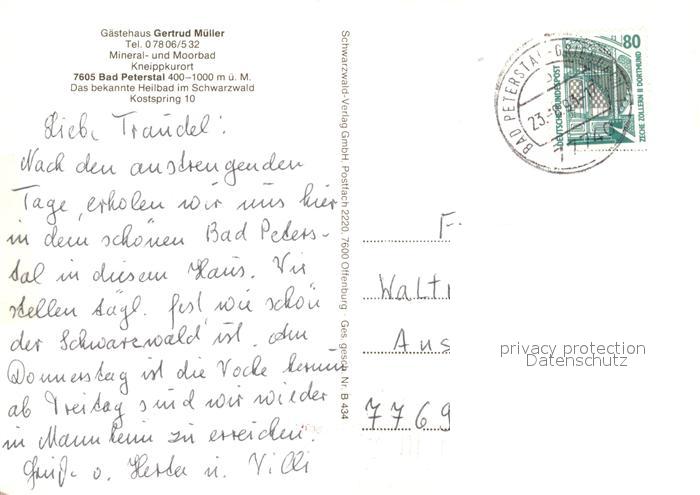 Gästehaus Gertrud Müller
Tel. 0 78 06/5 32
Mineral- und Moorbad
Kneippkurort
7605 Bad Peterstal 400–1000 m ü. M.
Das bekannte Heilbad im Schwarzwald
Kostspring 10
Liebe Traudel!
Nach den anstrengenden
Tage, erholen wir uns hier
in dem schönen Bad Peters-
tal in diesem Haus. Wir
stellen tägl. fest wie schön
der Schwarzwald ist. Am
Donnerstag ist die Woche herum
ab Freitag sind wir wieder
in Mannheim zu erreichen.
Gruß v. Herta u. Willi
Schwarzwald-Verlag GmbH, Postfach 2220, 7600 Offenburg · Ges. gesch. Nr. B 434
80
DEUTSCHE BUNDESPOST
ZECHE ZOLLERN II DORTMUND
BAD PETERSTAL-GRIESBACH
23.
F
Walt
Aus
7769
privacy protection
Datenschutz